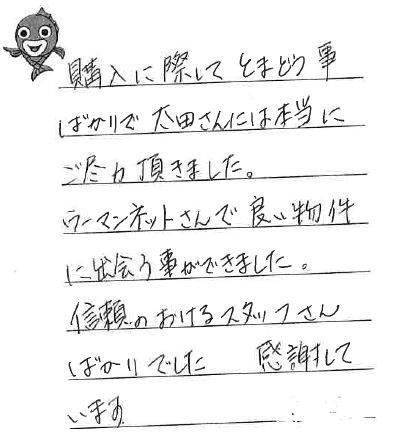 購入に際して とまどう事
ばかりで 太田さんには本当に
ご尽力頂きました。
ウーマンネットさんで良い物件
に出会う事ができました。
信頼のおけるスタッフさん
ばかりでした 感謝して
います